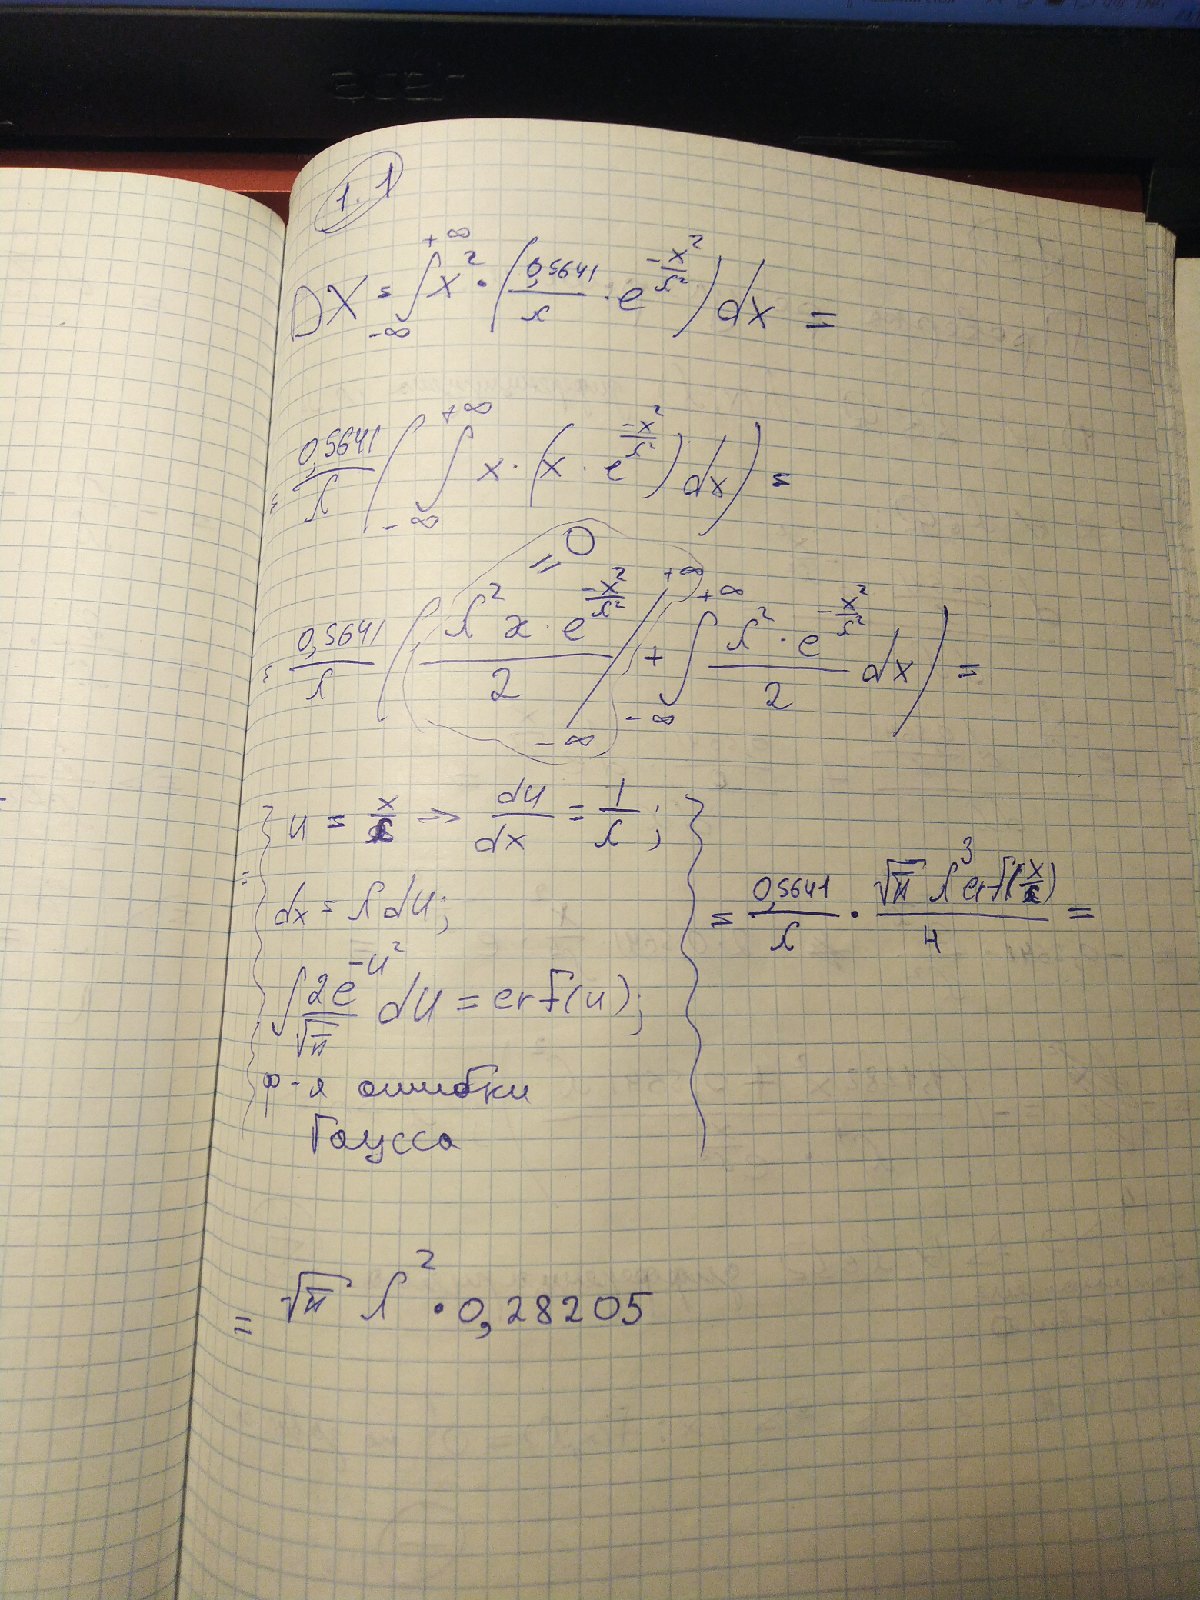 acer
1.1
DX = ∫_{-∞}^{+∞} x² · (0,5641/λ · e^{-x²/λ²}) dx =
= 0,5641/λ (∫_{-∞}^{+∞} x · (x · e^{-x²/λ²}) dx) =
= 0
= 0,5641/λ (λ² x · e^{-x²/λ²}/2 |_{-∞}^{+∞} + ∫_{-∞}^{+∞} λ² · e^{-x²/λ²}/2 dx) =
= { u = x/λ => du/dx = 1/λ;
dx = λ du;
∫ 2e^{-u²}/√π du = erf(u);
ф-я ошибки
Гаусса }
= 0,5641/λ · √π λ³ erf(x/λ)/4 =
= √π λ² · 0,28205